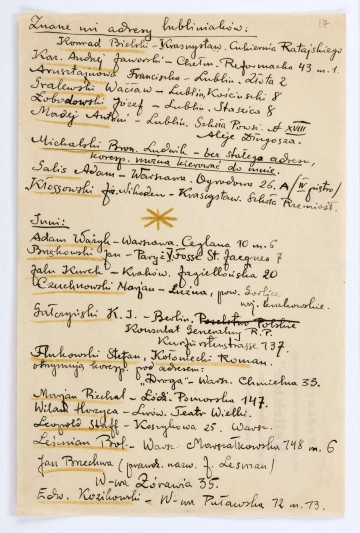 17
Znane mi adresy lubliniaków:
Konrad Bielski – Krasnystaw. Cukiernia Ratajskiego
Kaz. Andrzej Jaworski – Chełm. Reformacka 43 m. 1.
Arnsztajnowa Franciszka – Lublin. Złota 2
Gralewski Wacław – Lublin, Kościuszki 8
Łobodowski Józef – Lublin. Staszica 8
Madej Antoni – Lublin. Szkoła Powsz. № XVIII
Aleje Długosza.
Michalski Bron. Ludwik – bez stałego adresu,
koresp. można kierować do mnie.
Salis Adam – Warszawa. Ogrodowa 26. A/IV piętro/
Kłossowski Nikodem – Krasnystaw. Szkoła Rzemiosł.
Inni:
Adam Ważyk – Warszawa. Ceglana 10 m. 6
Brzękowski Jan – Paryż V Fossé St. Jacques 7
Jalu Kurek – Kraków. Jagiellońska 20
Czuchnowski Marjan – Łużna, pow. Gorlice
woj. krakowskie.
Gałczyński K. I. – Berlin. Poselstwo Polskie
Konsulat Generalny R.P.
Kurfürstenstrasse 137.
Flukowski Stefan, Kołoniecki Roman.
otrzymują koresp. pod adresem:
„Droga" – Warsz. Chmielna 35.
Marjan Piechal – Łódź. Pomorska 147.
Wilam Horzyca – Lwów. Teatr Wielki.
Leopold Staff – Koszykowa 25. Warsz.
Leśmian Bol. – Warsz. Marszałkowska 148 m. 6
Jan Brzechwa (prawdz. nazw. J. Lesman)
W-wa Żórawia 35.
Edw. Kozikowski – W-wa Puławska 12 m. 13.